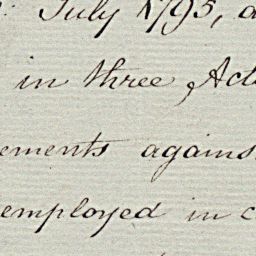 July 1795, a
in three Act
ements agains
employed in c